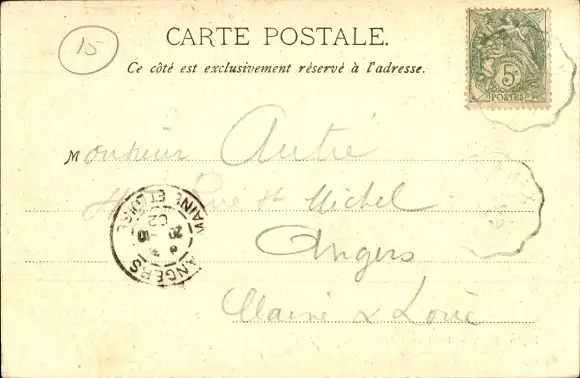 15
CARTE POSTALE.
Ce côté est exclusivement réservé à l'adresse.
5c
POSTES
Monsieur Autié
Rue St Michel
Angers
Maine & Loire
ANGERS
MAINE ET LOIRE
02